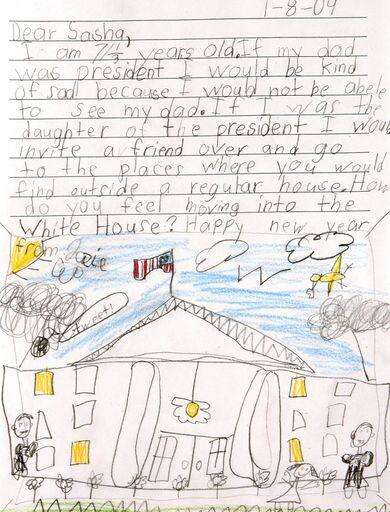 1-8-09
Dear Sasha,
I am 7 1/2 years old. If my dad
was president I would be kind
of sad because I would not be abele
to see my dad. If I was the
daughter of the president I woul
invite a friend over and go
to the places where you would
find outside a regular house. How
do you feel moving into the
White House? Happy new year
from,
tweet!